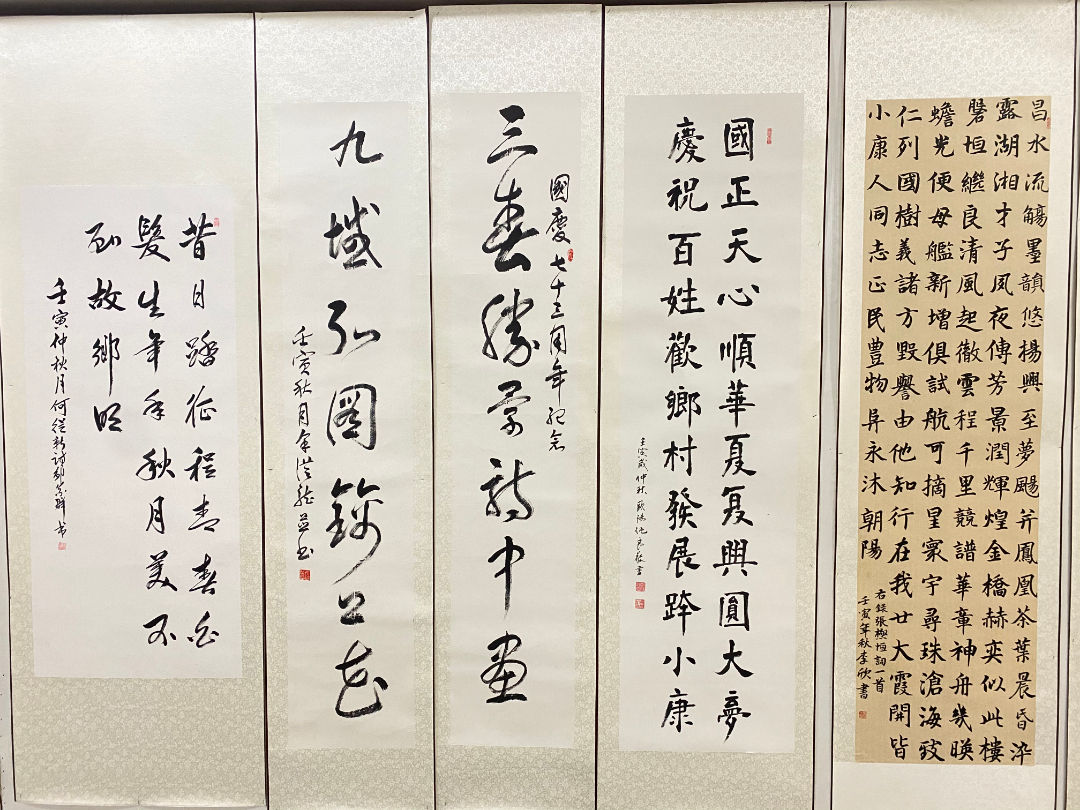 昌水流觴墨韻悠揚興至夢颺并鳳凰茶葉晨昏染
露湖湘才子夙夜傳芳景潤輝煌金橋赫奕似此樓
磬恒繼良清風起徹雲程千里競譜華章神舟幾暎
蟾光便母艦新增俱試航可摘星寰宇尋珠滄海致
仁列國樹義諸方毀譽由他知行在我廿大霞開皆
小康人同志正民豊物阜永沐朝陽
右錄張樾恒詞一首
壬寅年秋李欣書
國正天心順華夏复興圓大夢
慶祝百姓歡鄉村發展跨小康
壬寅歲仲秋歐陽化良敬書
國慶七十三周年紀念
三春勝景詩中畫
九域弘圖錦上花
壬寅秋月余洪龍並书
昔日踏征程青春白
髮生年年秋月美不
及故鄉明
壬寅仲秋月何詩书